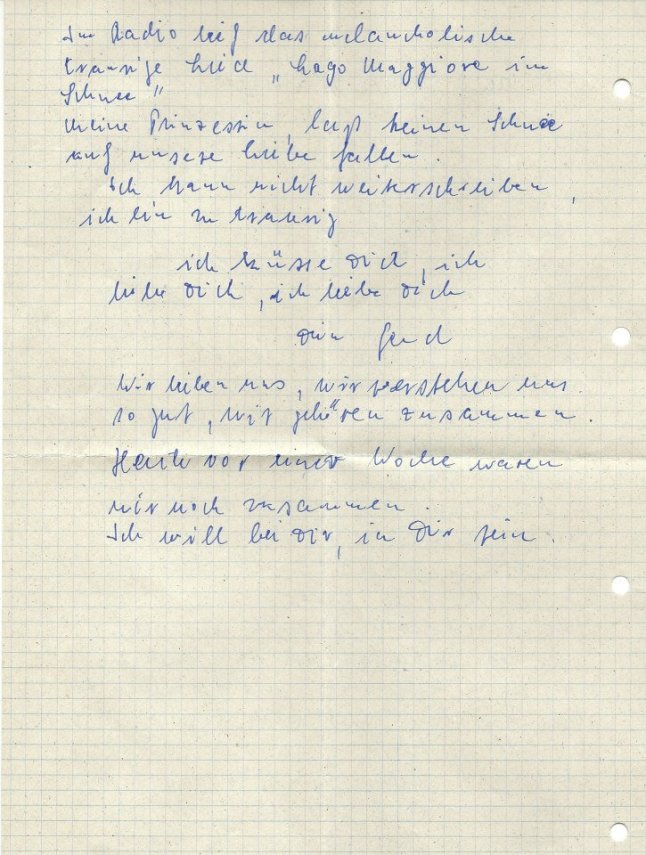 Im Radio lief das melancholische
traurige Lied „Lago Maggiore im
Schnee"
Meine Prinzessin, laß keinen Schnee
auf unsere Liebe fallen.
Ich kann nicht weiterschreiben,
ich bin zu traurig
ich küsse Dich, ich
liebe Dich, ich liebe Dich
Dein Gerd
Wir lieben uns, wir verstehen uns
so gut, wir gehören zusammen.
Heute vor einer Woche waren
wir noch zusammen.
Ich will bei Dir, in Dir sein.